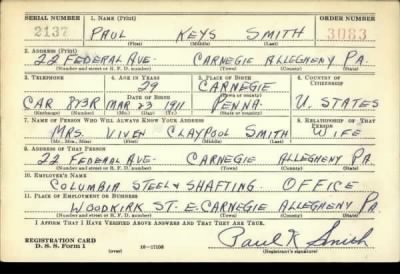 SERIAL NUMBER 1. NAME (Print) ORDER NUMBER
2137 PAUL KEYS SMITH 3083
(First) (Middle) (Last)
2. ADDRESS (Print)
22 FEDERAL AVE. CARNEGIE ALLEGHENY PA.
(Number and street or R. F. D. number) (Town) (County) (State)
3. TELEPHONE 4. AGE IN YEARS 5. PLACE OF BIRTH 6. COUNTRY OF CITIZENSHIP
29 CARNEGIE
DATE OF BIRTH (Town or county)
CAR 873R MAR 23 1911 PENNA. U. STATES
(Exchange) (Number) (Mo.) (Day) (Yr.) (State or country)
7. NAME OF PERSON WHO WILL ALWAYS KNOW YOUR ADDRESS 8. RELATIONSHIP OF THAT PERSON
MRS. VIVEN CLAYPOOL SMITH WIFE
(Mr., Mrs., Miss) (First) (Middle) (Last)
9. ADDRESS OF THAT PERSON
22 FEDERAL AVE. CARNEGIE ALLEGHENY PA.
(Number and street or R. F. D. number) (Town) (County) (State)
10. EMPLOYER'S NAME
COLUMBIA STEEL & SHAFTING. OFFICE
11. PLACE OF EMPLOYMENT OR BUSINESS
WOODKIRK ST. E. CARNEGIE ALLEGHENY PA.
(Number and street or R. F. D. number) (Town) (County) (State)
I AFFIRM THAT I HAVE VERIFIED ABOVE ANSWERS AND THAT THEY ARE TRUE.
Paul K Smith
REGISTRATION CARD
D. S. S. Form 1 (over) 16-17105 (Registrant's signature)